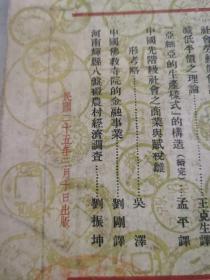 減低平價之理論
王克生譯
亞細亞的生產樣式』的構造（續完）
孟平譯
中國先階段社會之商業與賦稅雛形考略
吳澤
中國佛教寺院的金融事業
劉剛譯
河南輝縣八盤磨農村經濟調查
劉振坤
民國二十五年三月十日出版